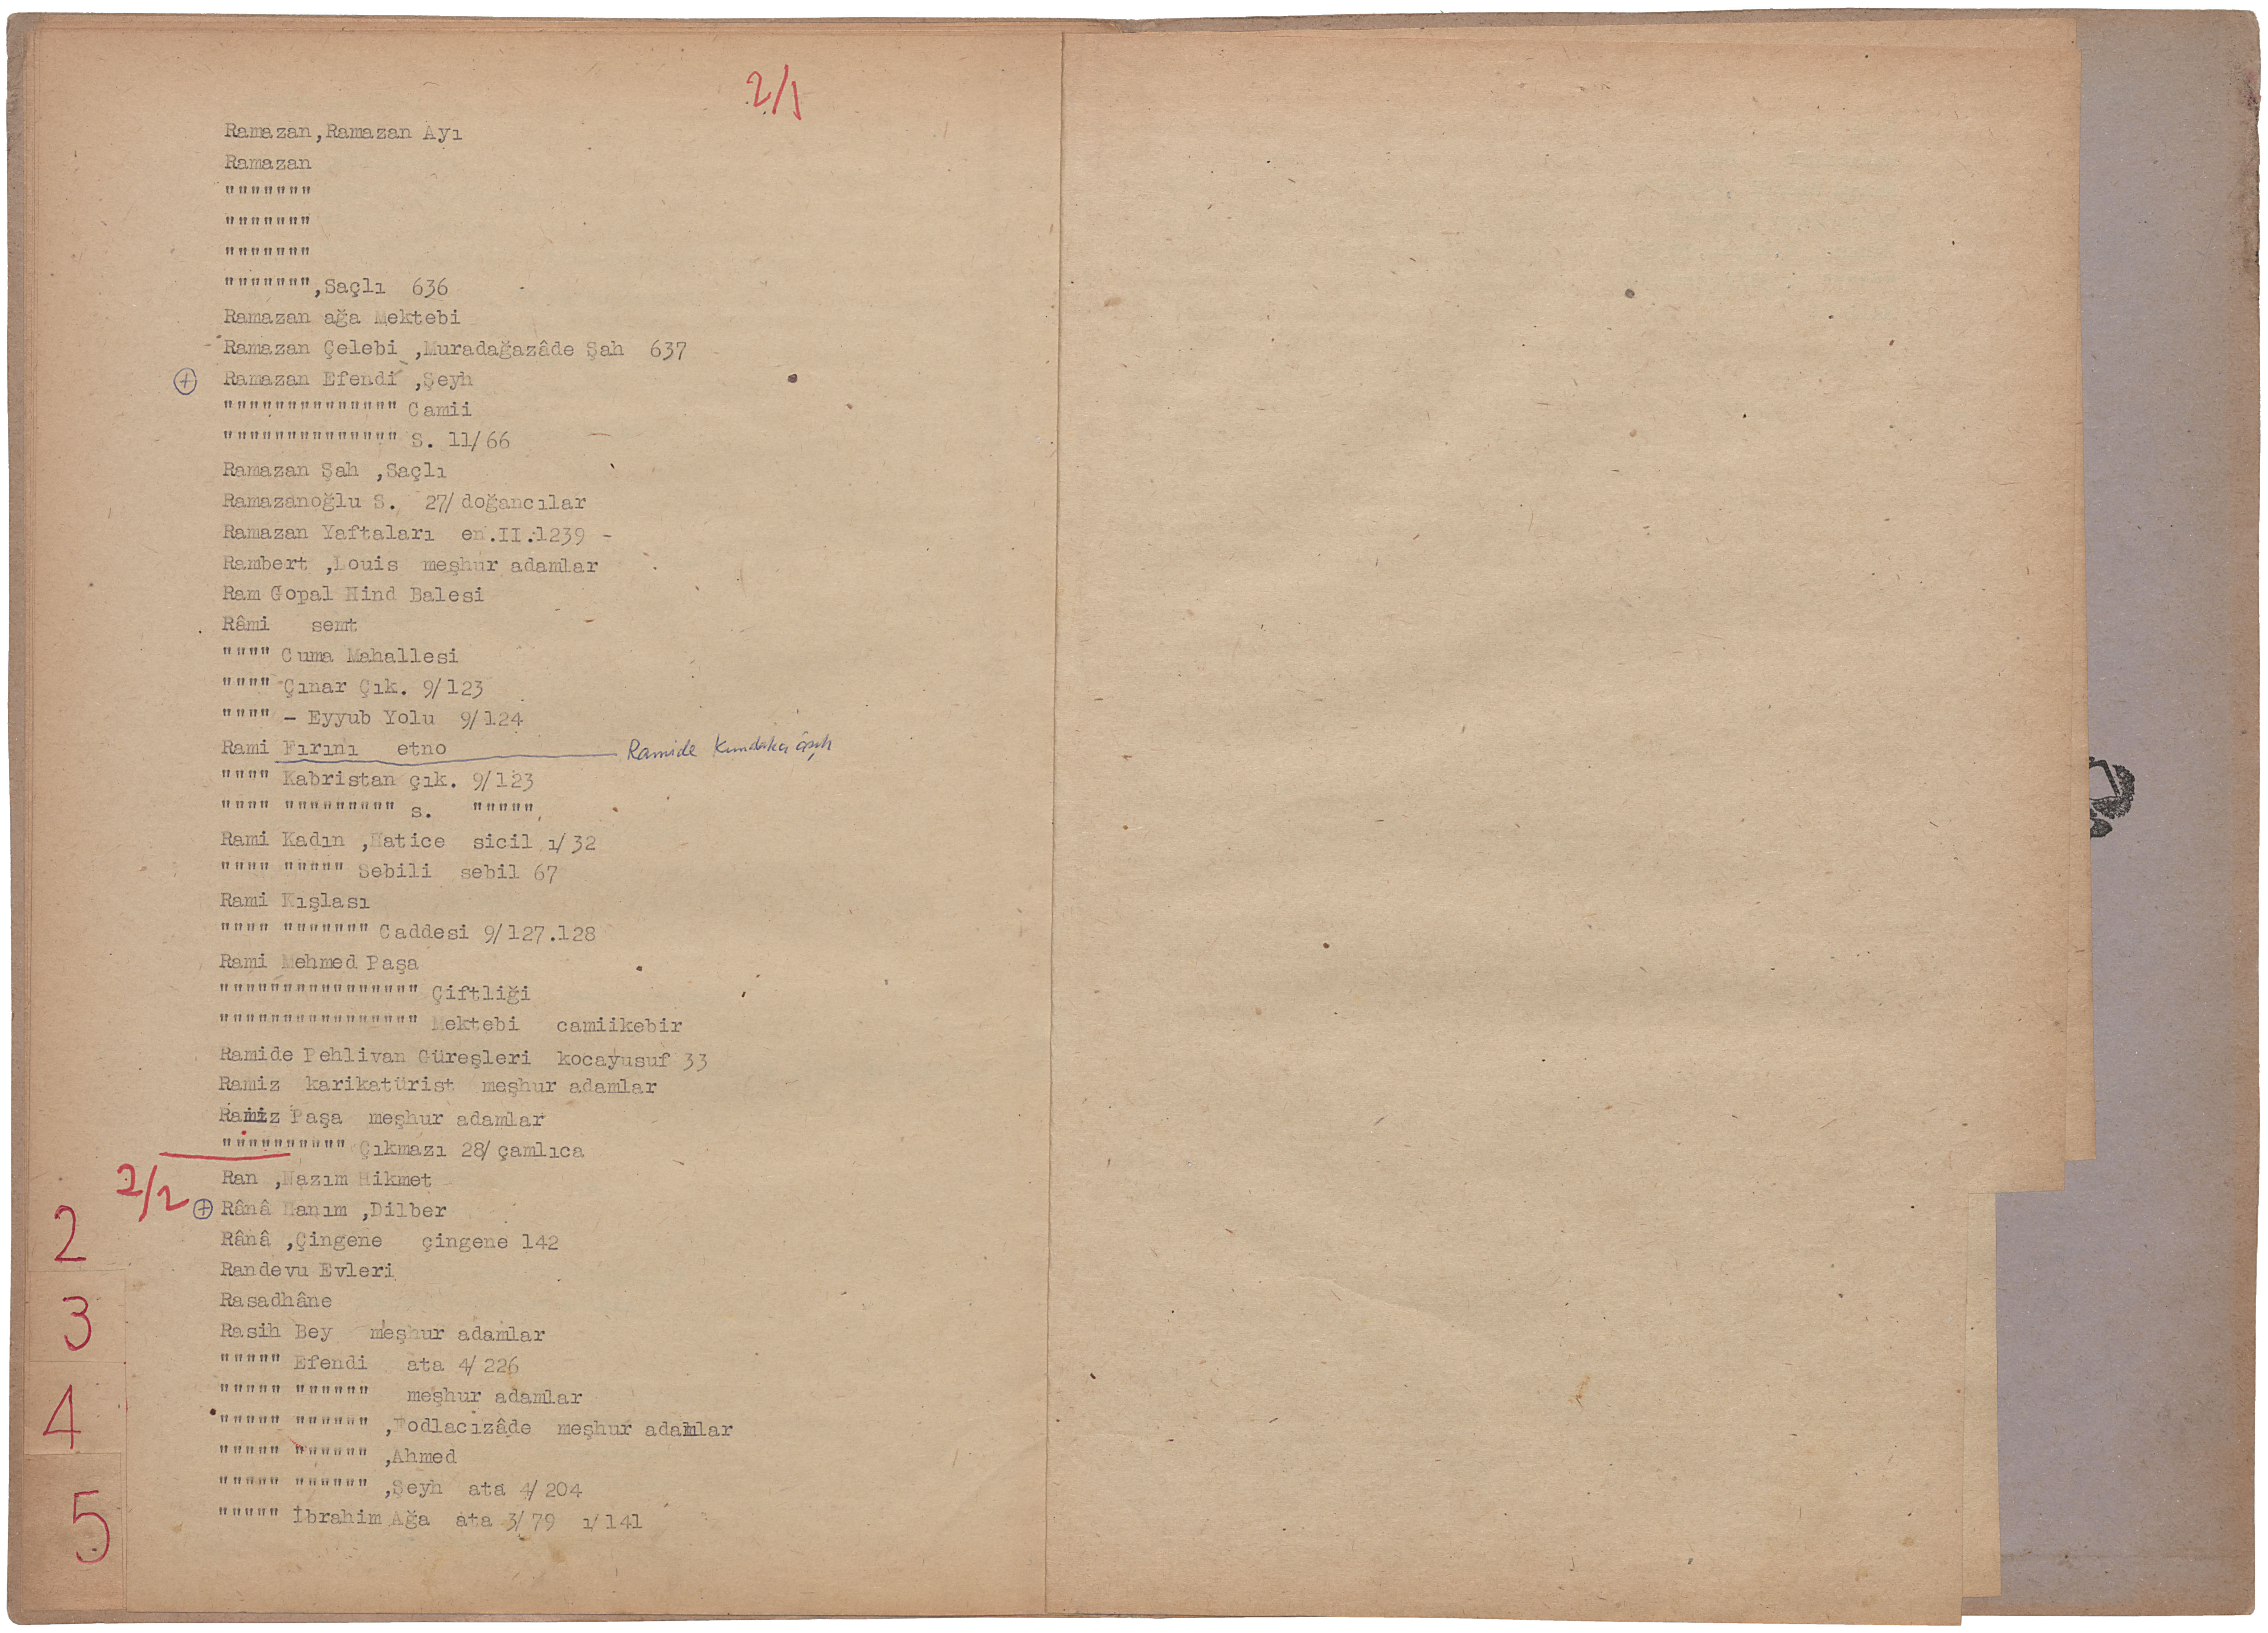 2/1
Ramazan,Ramazan Ayı
Ramazan
"""""""
"""""""
"""""""
""""""",Saçlı 636
Ramazan ağa Mektebi
Ramazan Çelebi ,Muradağazâde Şah 637
Ramazan Efendi ,Şeyh
"""""""""""""" Camii
"""""""""""""" S. 11/66
Ramazan Şah ,Saçlı
Ramazanoğlu S. 27/doğancılar
Ramazan Yaftaları en.II.1239 -
Rambert ,Louis meşhur adamlar
Ram Gopal Hind Balesi
Râmi semt
"""" Cuma Mahallesi
"""" Çınar Çık. 9/123
"""" - Eyyub Yolu 9/124
Rami Fırını etno Ramide Kundakcı
"""" Kabristan çık. 9/123
"""" """"""""" s. """""
Rami Kadın ,Hatice sicil 1/32
"""" """"" Sebili sebil 67
Rami Kışlası
"""" """"""" Caddesi 9/127.128
Rami Mehmed Paşa
"""""""""""""""" Çiftliği
"""""""""""""""" Mektebi camiikebir
Ramide Pehlivan Güreşleri kocayusuf 33
Ramiz karikatürist meşhur adamlar
Ramiz Paşa meşhur adamlar
"""""""""" Çıkmazı 28/çamlıca
2/2
Ran ,Nazım Hikmet
Rânâ Hanım ,Dilber
Rânâ ,Çingene çingene 142
Randevu Evleri
Rasadhâne
Rasih Bey meşhur adamlar
""""" Efendi ata 4/226
""""" """""" meşhur adamlar
""""" """""" ,Fodlacızâde meşhur adamlar
""""" """""" ,Ahmed
""""" """""" ,Şeyh ata 4/204
""""" İbrahim Ağa ata 3/79 1/141
2
3
4
5